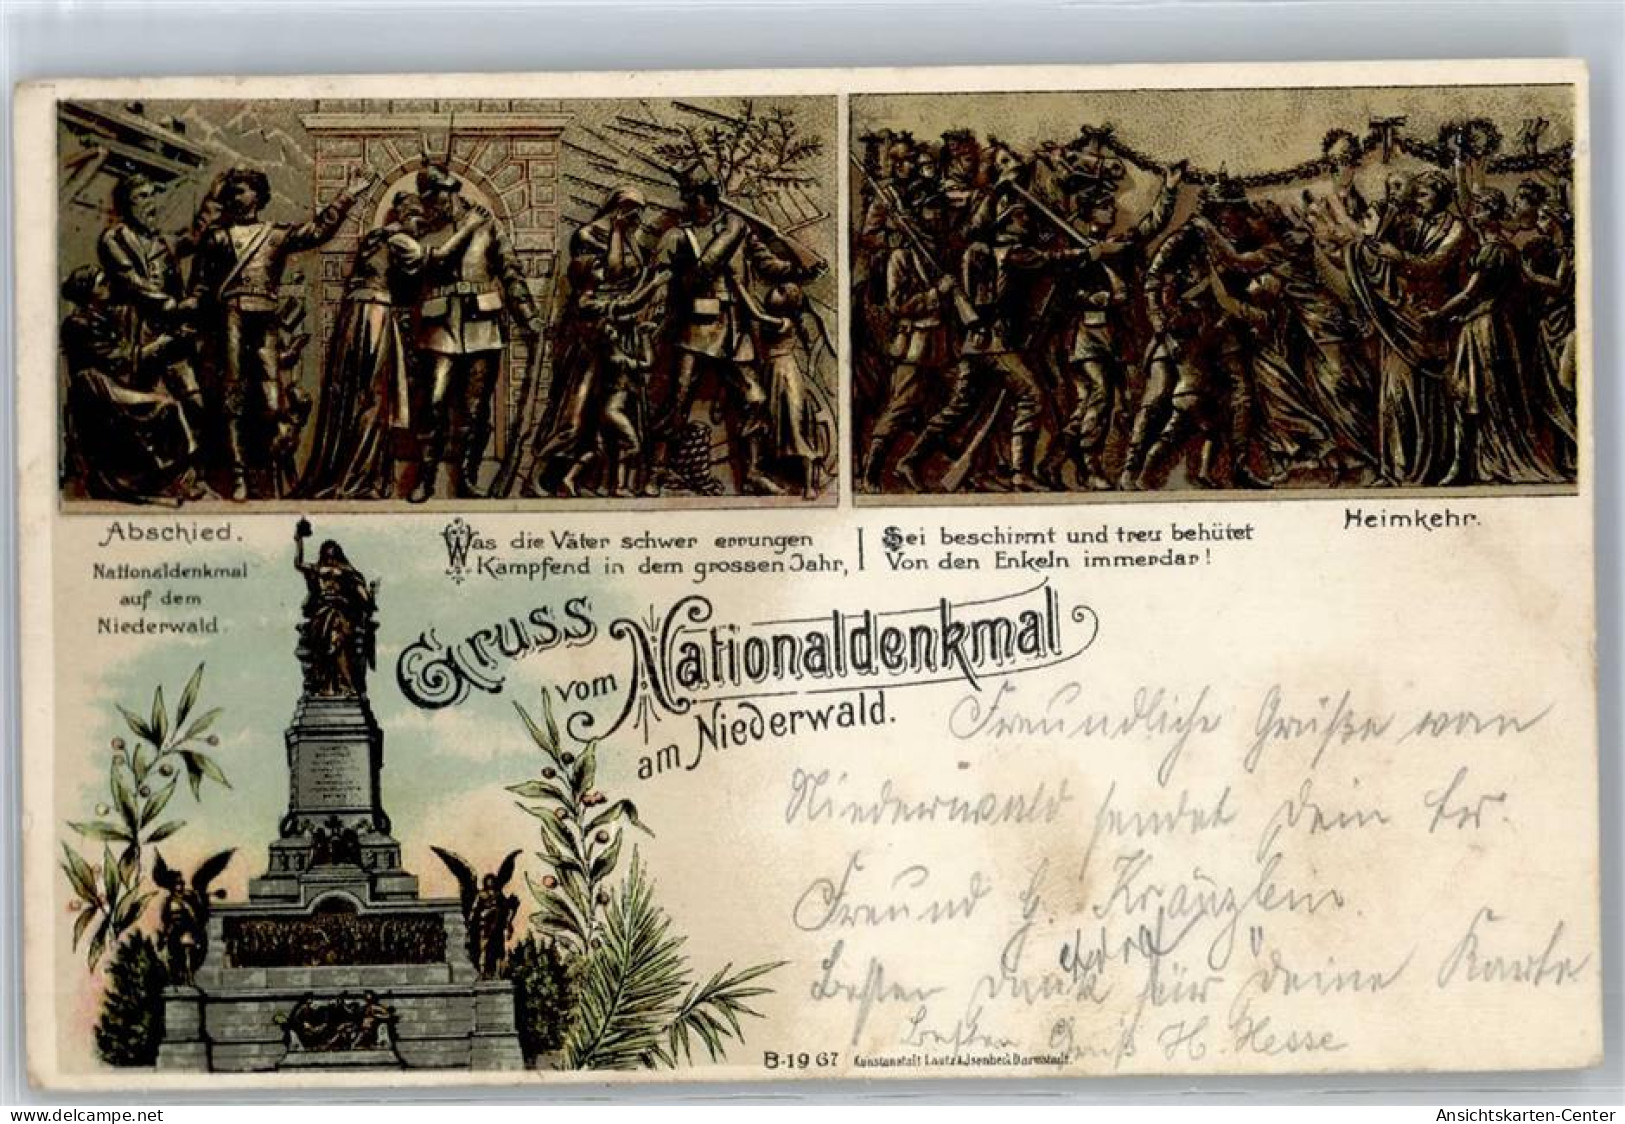 Abschied.
Heimkehr.
Nationaldenkmal
auf dem
Niederwald.
Was die Väter schwer errungen
Kämpfend in dem grossen Jahr,
Sei beschirmt und treu behütet
Von den Enkeln immerdar!
Gruss
vom Nationaldenkmal
am Niederwald.
Freundliche Grüße vom
Niederwald sendet Dein
Freund
Besten Dank für Deine Karte
Besten Gruß H. Hesse
B-19 67 Kunstanstalt Lautz & Isenbeck Darmstadt.
www.delcampe.net
Ansichtskarten-Center